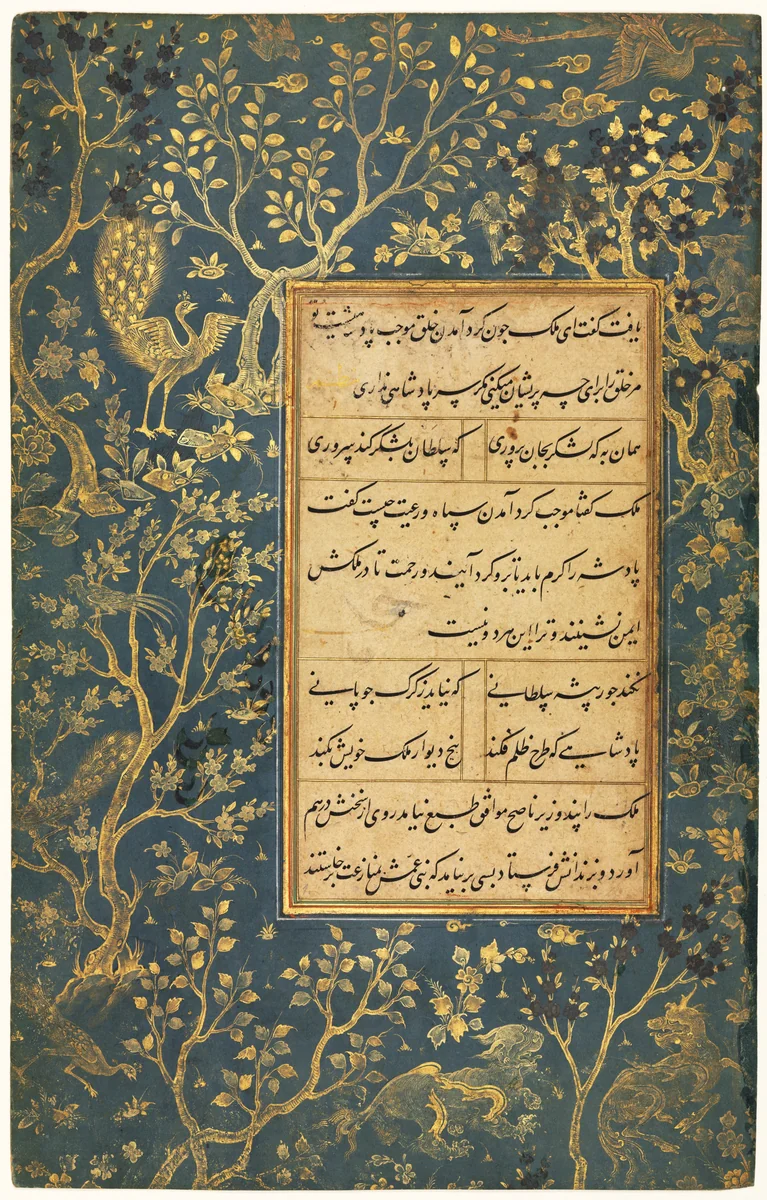 یافت گفت ای ملک چون گرد آمدن خلق موجب پادشاهیست تو
مر خلق را برای چه پریشان میکنی مگر سر پادشاهی نداری
همان به که لشکر بجان پروری که سلطان بلشکر کند سروری
ملک گفتا موجب گرد آمدن سپاه و رعیت چیست گفت
پادشه را کرم باید تا برو گرد آیند و رحمت تا در ملکش
ایمن نشینند و ترا این هر دو نیست
نکند جور پیشه سلطانی که نیاید ز گرگ چوپانی
پادشاهی که طرح ظلم فکند بیخ دیوار ملک خویش بکند
ملک را پند وزیر ناصح موافق طبع نیامد روی از سخنش درهم
آورد و بزندانش فرستاد بسی بر نیامد که بنی عمش بمنازعت برخاستند